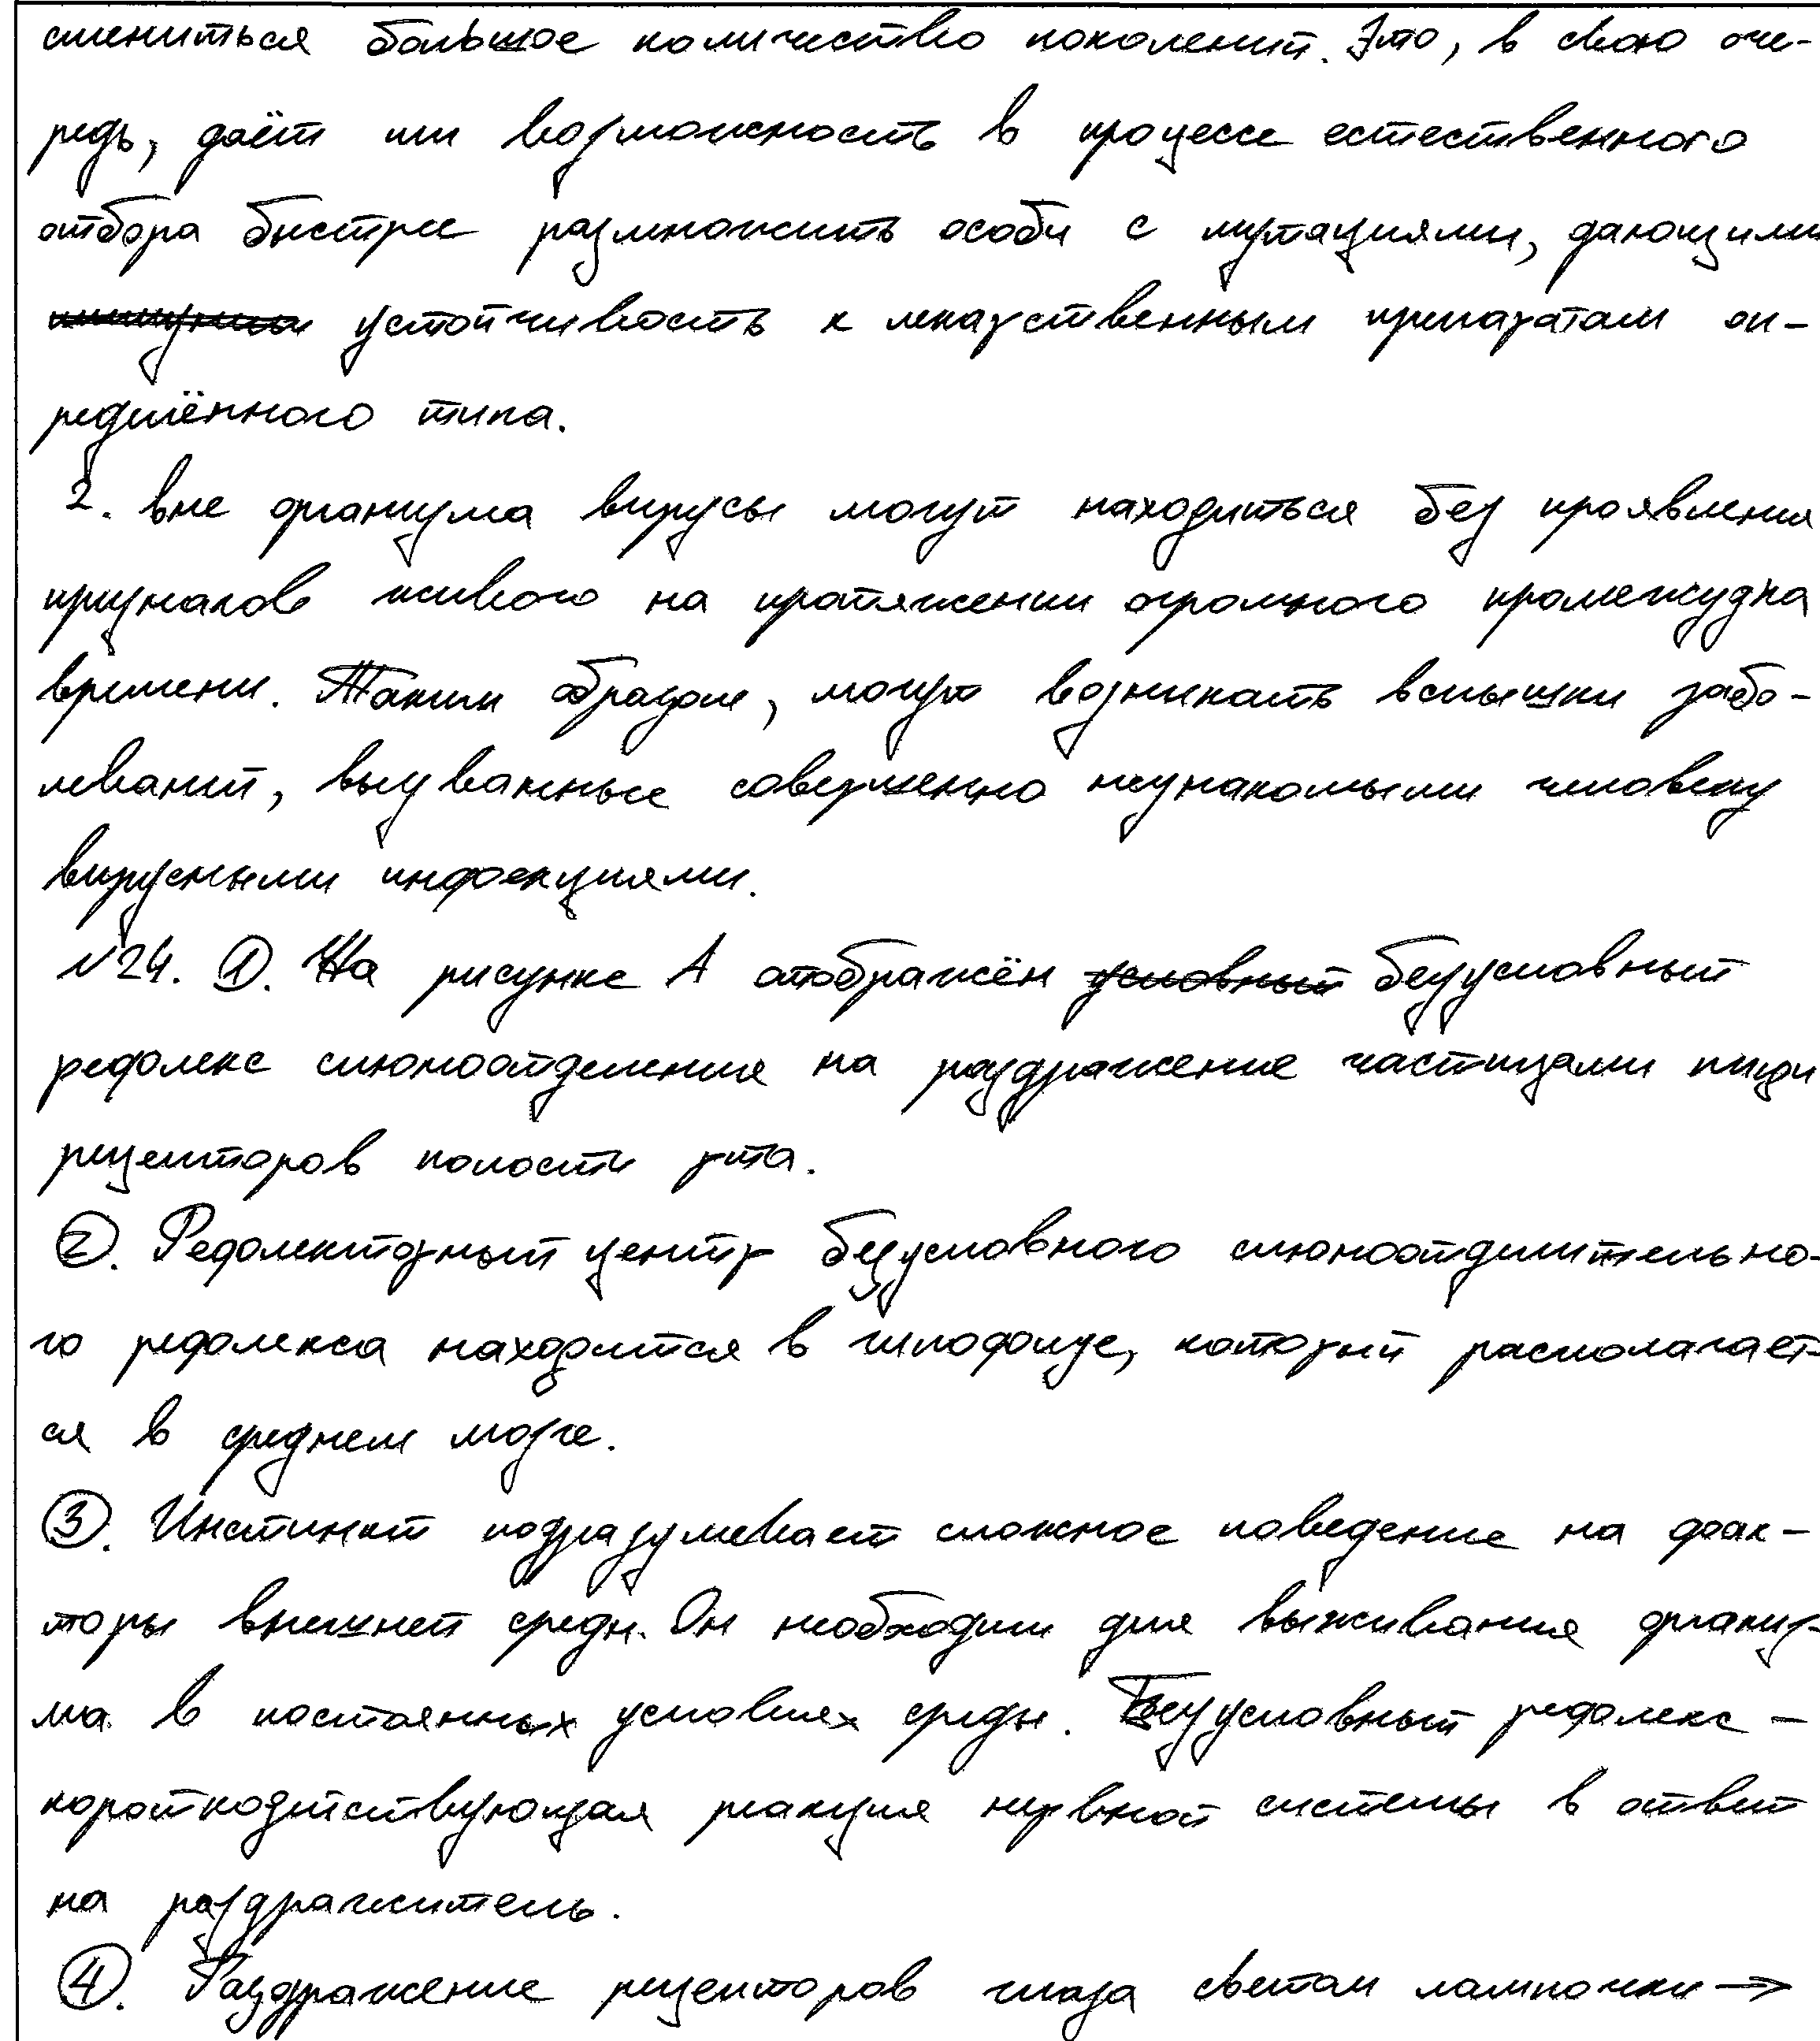 смениться большое количество поколений. Это, в свою оче-
редь, даёт им возможность в процессе естественного
отбора быстрее размножить особи с мутациями, дающими
устойчивость к лекарственным препаратам оп-
ределённого типа.
2. вне организма вирусы могут находиться без проявления
признаков живого на протяжении огромного промежудка
времени. Таким образом, могут возникать вспышки забо-
леваний, вызванные совершенно незнакомыми человеку
вирусными инфекциями.
№24. ①. На рисунке А отображён условный безусловный
рефлекс слюноотделения на раздражение частицами пищи
рецепторов полости рта.
②. Рефлекторный центр безусловного слюноотделительно-
го рефлекса находится в гипофизе, который располагает-
ся в среднем мозге.
③. Инстинкт подразумевает сложное поведение на фак-
торы внешней среды. Он необходим для выживания организ-
ма в постоянных условиях среды. Безусловный рефлекс -
короткодействующая реакция нервной системы в ответ
на раздражитель.
④. Раздражение рецепторов глаза светом лампочки →